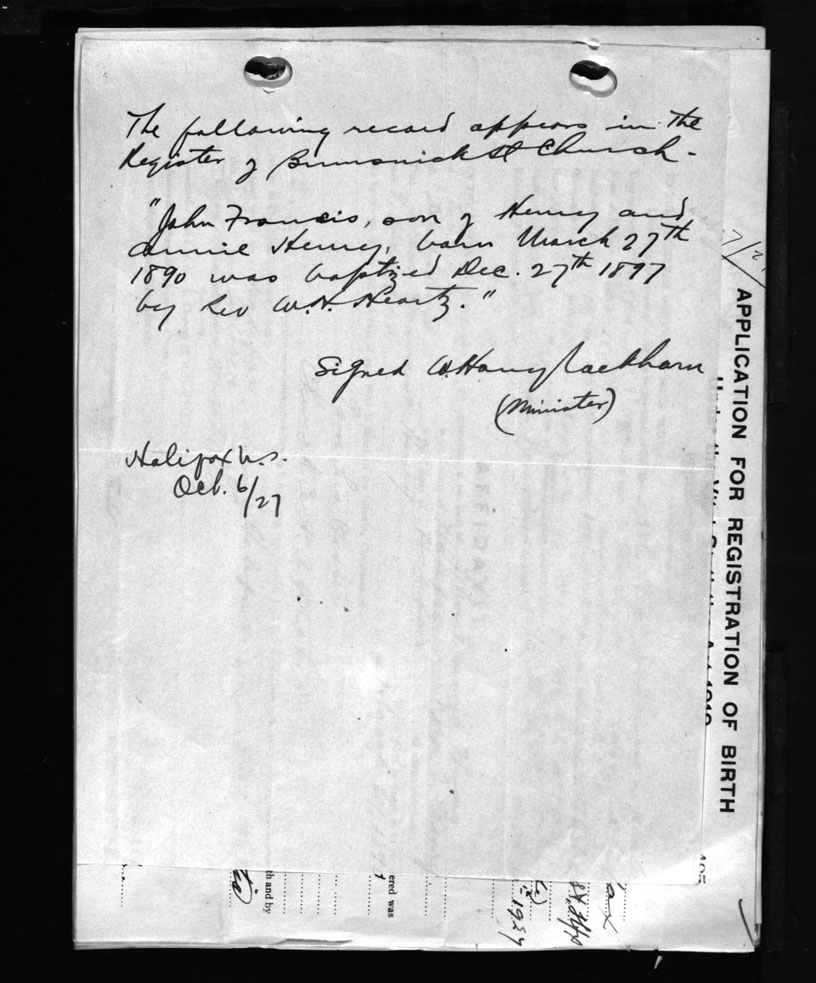 The following record appears in the
Register of Brunswick St Church -
"John Francis, son of Henry and
Annie Henry, born March 27th
1890 was baptized Dec. 27th 1897
by Rev W.H. Heartz."
Signed W. Harry
(Minister)
Halifax N.S.
Oct. 6/27
APPLICATION FOR REGISTRATION OF BIRTH
th and by
ered was
1927